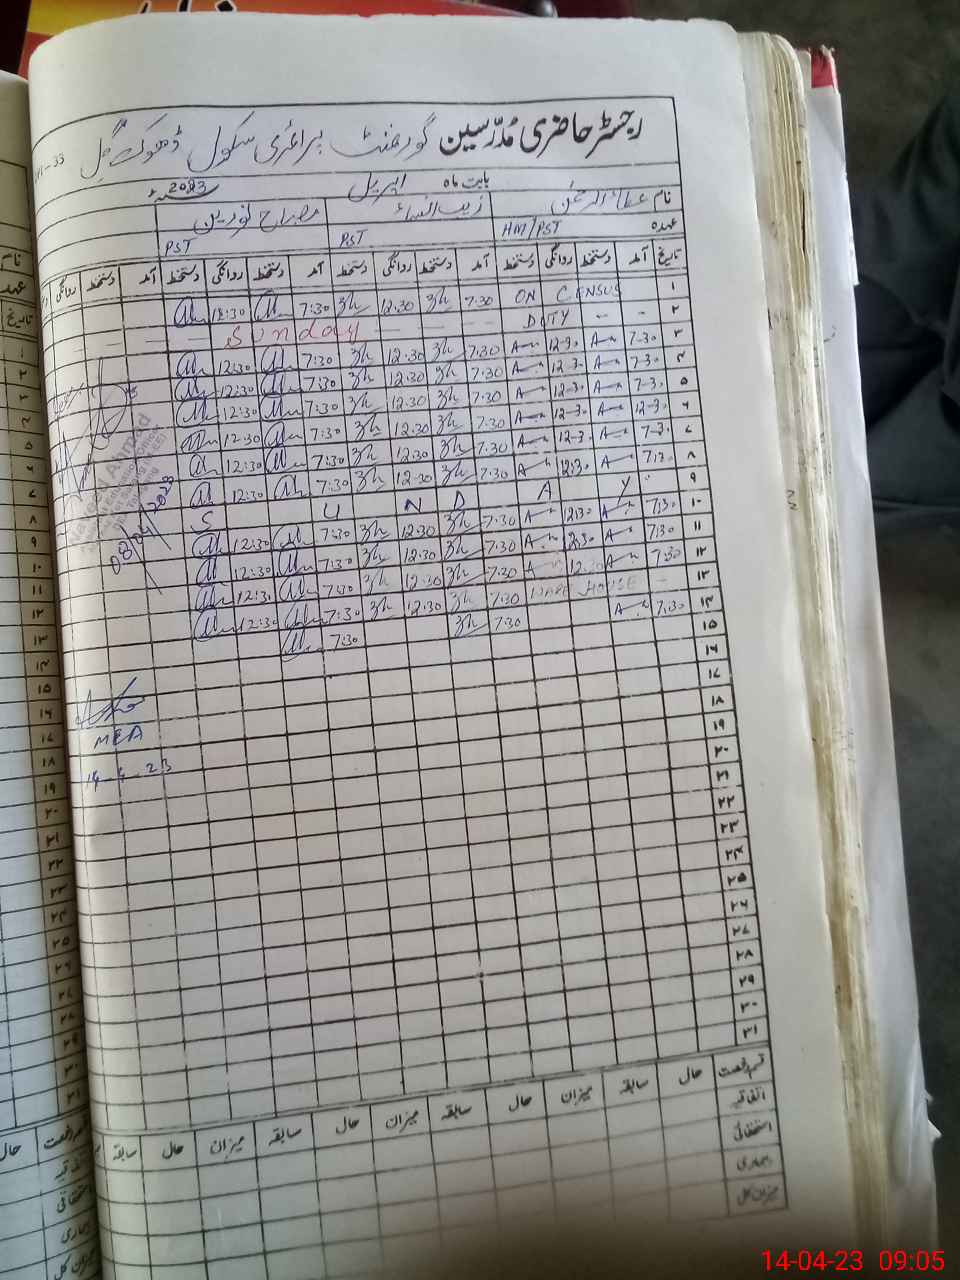 رجسٹر حاضری مُدرّسین گورنمنٹ پرائمری سکول ڈھوک گل
بابت ماہ اپریل 2023
نام عطاء الرحمٰن زیب النساء مصباح نورین
عہدہ HM/PST PST PST
تاریخ آمد دستخط روانگی دستخط آمد دستخط روانگی دستخط آمد دستخط روانگی دستخط آمد دستخط روانگی
۱ ON CENSUS 7:30 12:30 7:30 12:30
۲ DUTY - - Sunday
۳ 7-30 12-30 7:30 12:30 7:30 12:30
۴ 7-30 12-30 7:30 12:30 7:30 12:30
۵ 7-30 12-30 7:30 12:30 7:30 12:30
۶ 12-30 12-30 7:30 12:30 7:30 12:30
۷ 7-30 12-30 7:30 12:30 7:30 12:30
۸ 7:30 12:30 7:30 12:30 7:30 12:30
۹ S U N D A Y
۱۰ 7:30 12:30 7:30 12:30 7:30 12:30
۱۱ 7:30 12:30 7:30 12:30 7:30 12:30
۱۲ 7:30 12:30 7:30 12:30 7:30 12:30
۱۳ WARE HOUSE - 7:30 12:30 7:30 12:30
۱۴ 7:30 7:30 7:30
۱۵
۱۶
۱۷
۱۸
۱۹
۲۰
۲۱
۲۲
۲۳
۲۴
۲۵
۲۶
۲۷
۲۸
۲۹
۳۰
۳۱
08/04/2023
MEA
14-4-23
قسم رخصت حال سابقہ میزان حال سابقہ میزان حال سابقہ میزان حال سابقہ
اتفاقیہ
استحقاقی
بیماری
میزان کل
نام
عہدہ
تاریخ
۱
۲
۳
۴
۵
۶
۷
۸
۹
۱۰
۱۱
۱۲
۱۳
۱۴
۱۵
۱۶
۱۷
۱۸
۱۹
۲۰
۲۱
۲۲
۲۳
۲۴
۲۵
۲۶
۲۷
۲۸
۲۹
۳۰
۳۱
حال
14-04-23 09:05